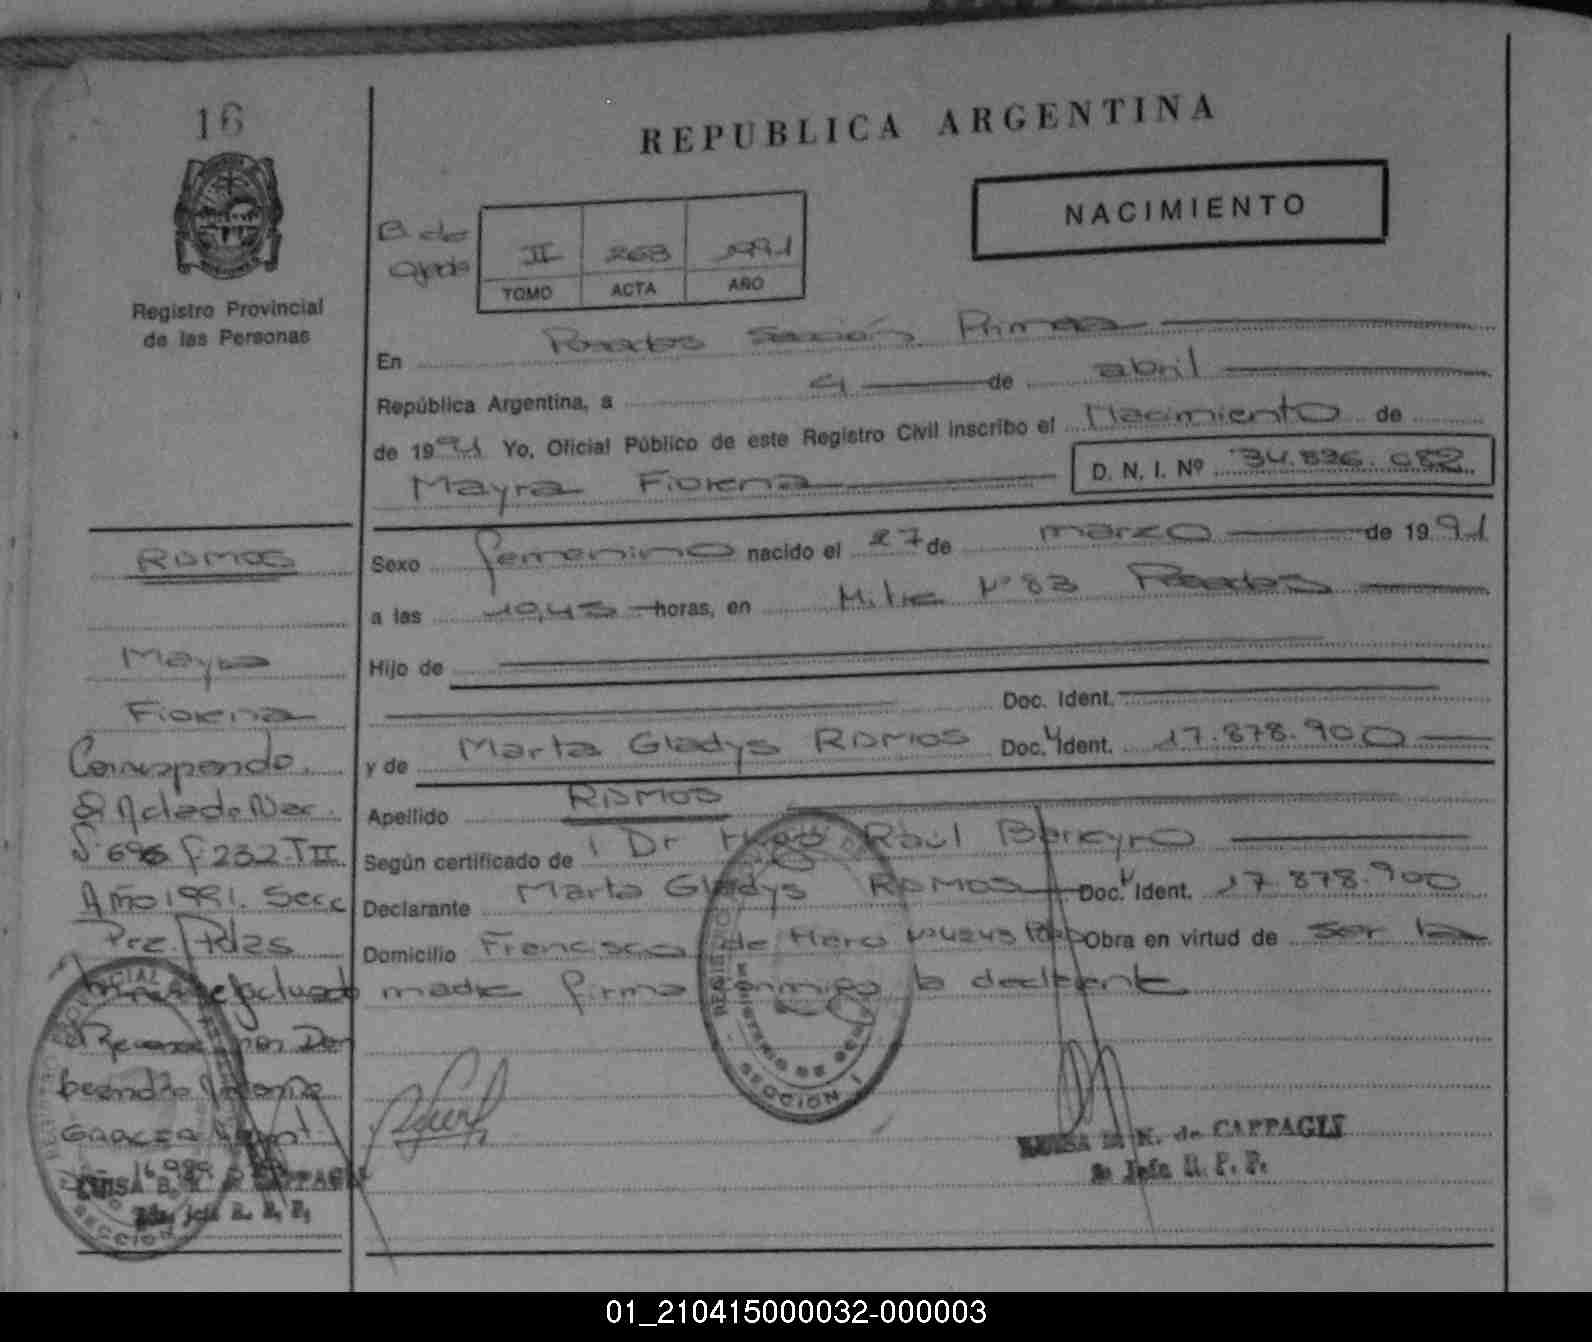 16
REPUBLICA ARGENTINA
NACIMIENTO
II 263 1991
TOMO ACTA AÑO
Registro Provincial
de las Personas
En Posadas Sección Primera
República Argentina, a 4 de abril
de 1991 Yo, Oficial Público de este Registro Civil inscribo el Nacimiento de
Mayra Fiorena D. N. I. Nº 34.896.082
RAMOS
Mayra
Fiorena
Sexo femenino nacido el 27 de marzo de 1991
a las 10,45 horas, en Mitre Nº 83 Posadas
Hijo de
Doc. Ident.
y de Marta Gladys RAMOS Doc. Ident. 17.878.900
Apellido RAMOS
Según certificado de 1 Dr Hugo Raúl Barreyro
Declarante Marta Gladys RAMOS Doc. Ident. 17.878.900
Domicilio Francisco de Haro Nº 4245 Pdas Obra en virtud de ser la
madre firma conmigo la declarante
Corresponde
Acta de Nac.
Nº 696 f. 232 T II
Año 1991. Secc
Pra. Pdas
GARCIA
REGISTRO PROVINCIAL
SECCION
REGISTRO
MINISTERIO DE
SECCION 1
LUISA B. K. de CAPPAGLI
Jefa R. P. P.
LUISA B. K. de CAPPAGLI
Jefa R. P. P.
01_210415000032-000003